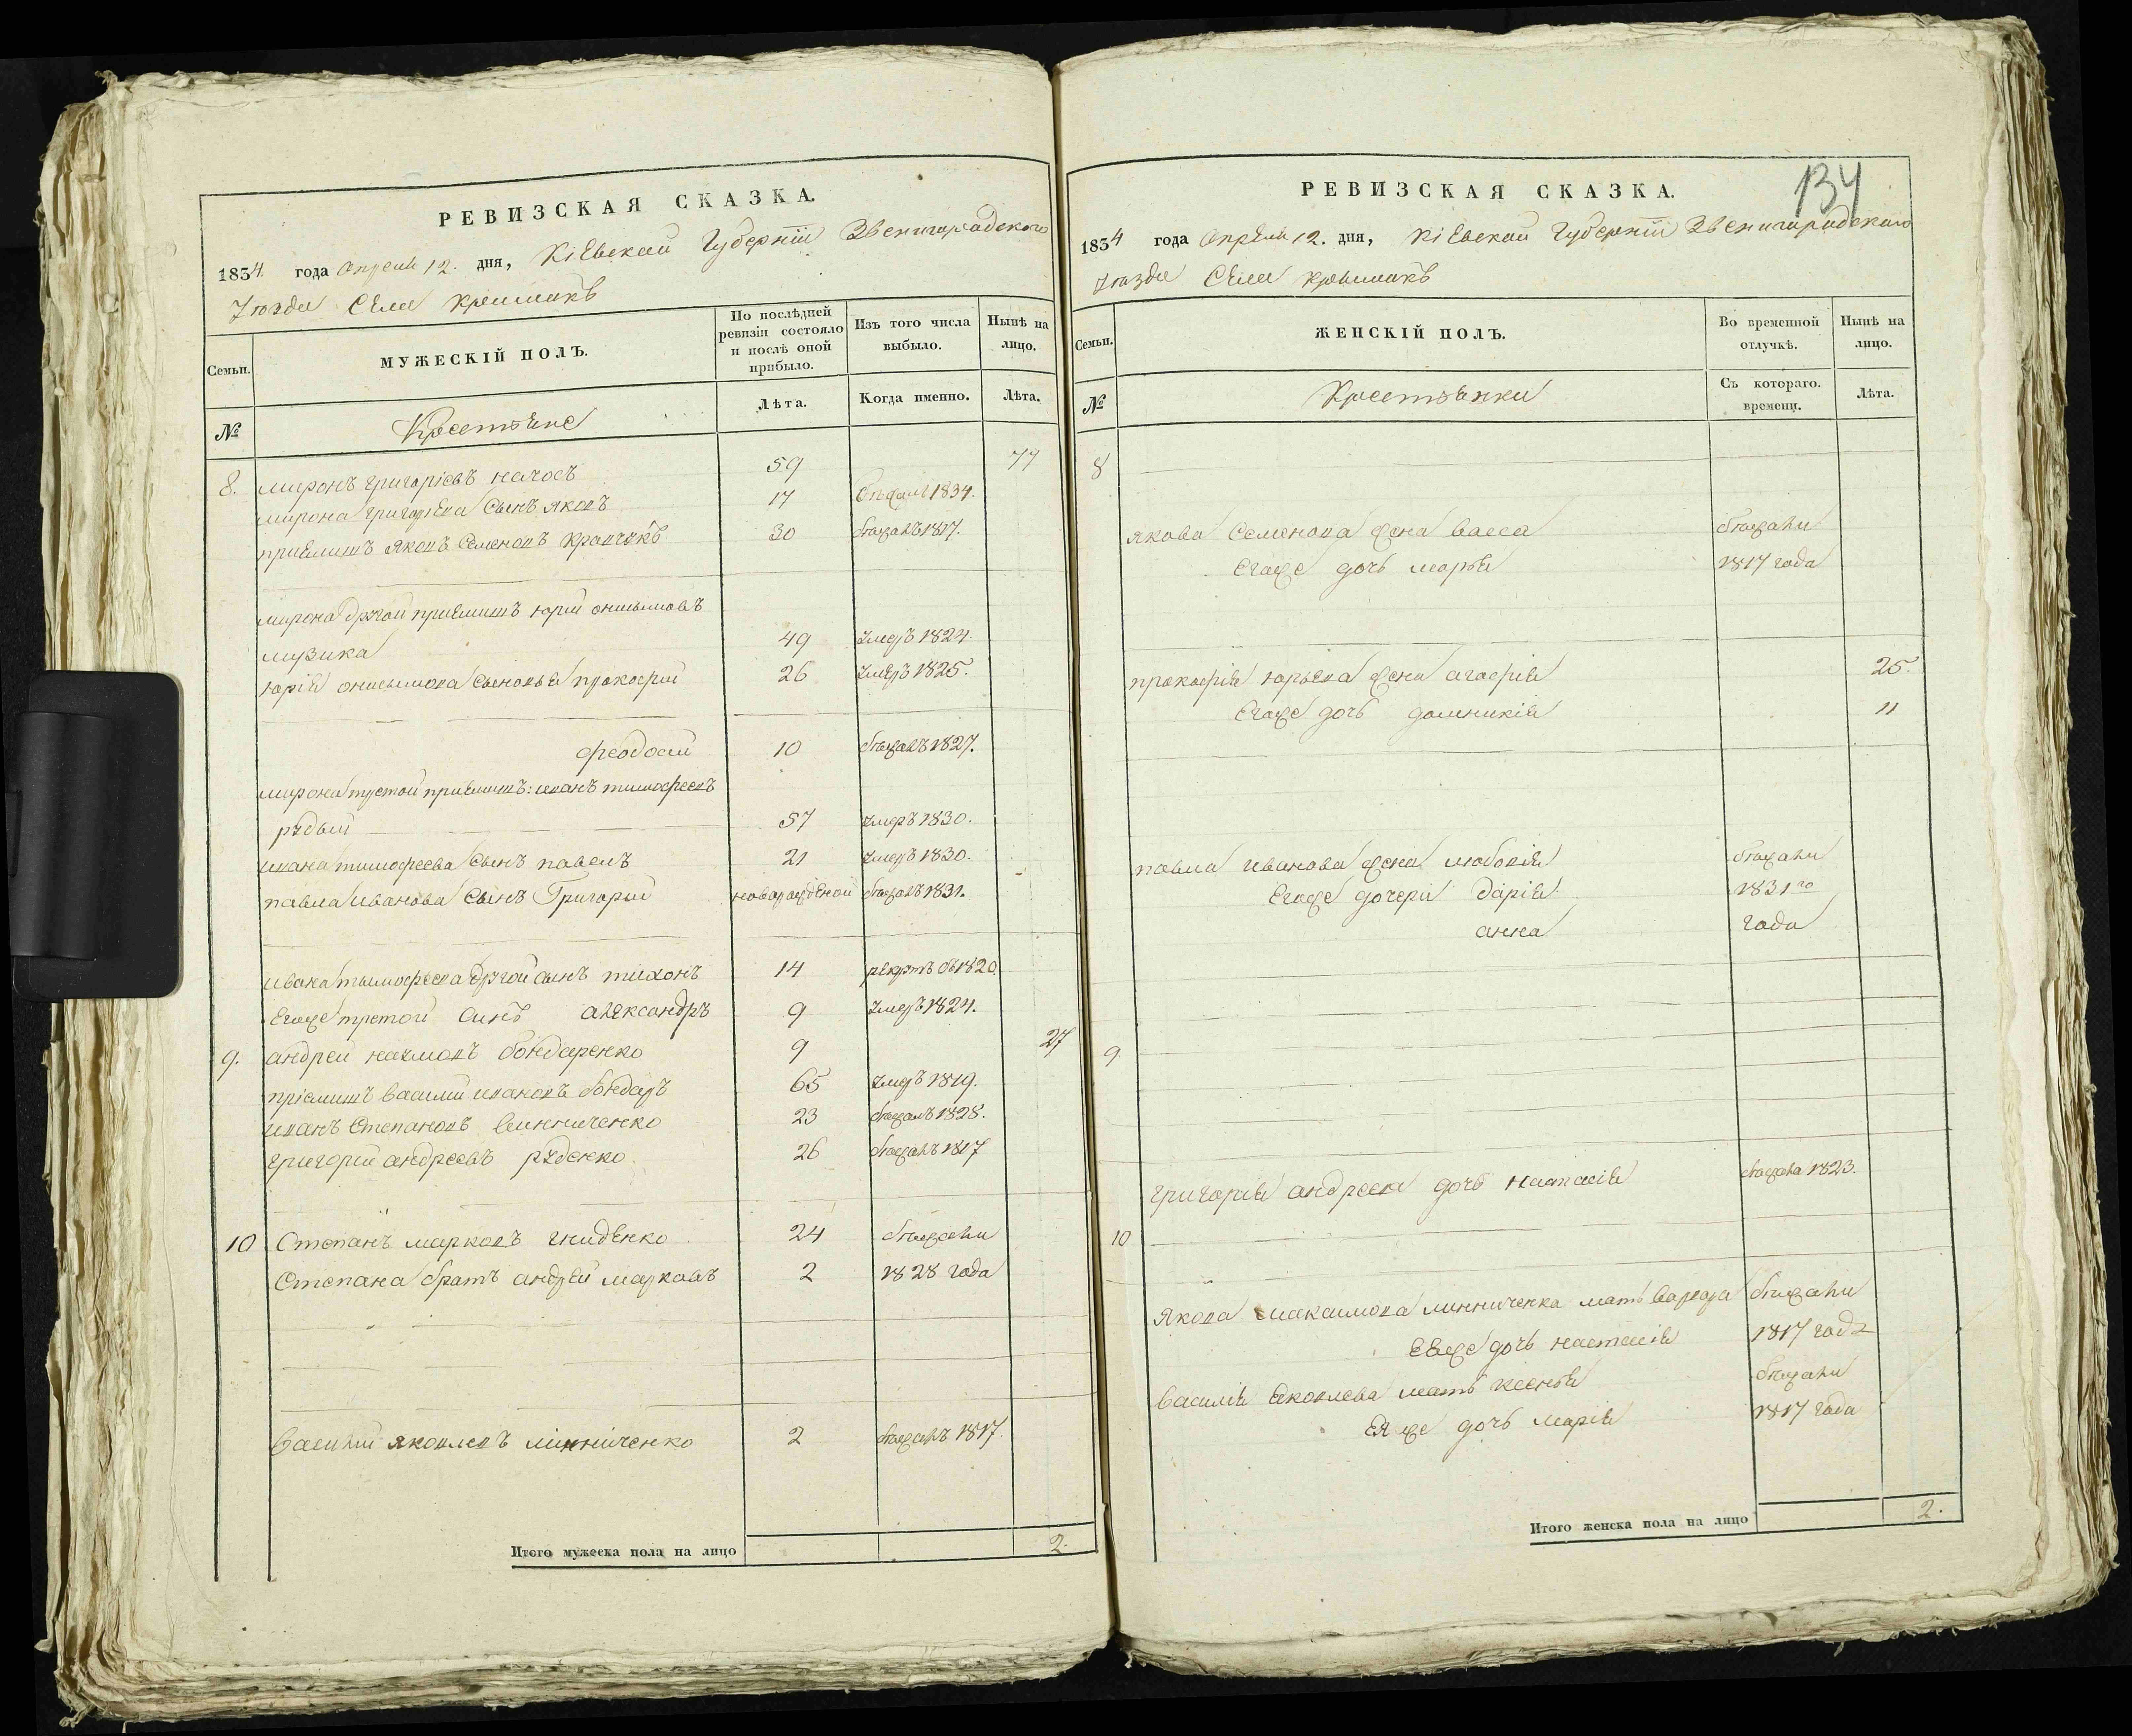 РЕВИЗСКАЯ СКАЗКА.
1834. года Апреля 12. дня, КіЕвской Губернїи Звенигородского
Уезда СЕла
Семьи.
МУЖЕСКІЙ ПОЛЪ.
По послѣдней ревизіи состояло и послѣ оной прибыло.
Изъ того числа выбыло.
Нынѣ на лицо.
№
Крестяне
Лѣта.
Когда именно.
Лѣта.
8. миронъ григоріевъ 59 77
мирона григорЕва Сынъ яковъ 17 1834.
приЕмишъ яковъ Семеновъ кравчукъ 30 бѣжалъ 1817.
мирона другой приЕмишъ юрій онисимовъ
музика 49 умеръ 1824.
юрія онисимова Сыновья прокофий 26 умЕръ 1825.
феодосий 10 бѣжалъ 1827.
мирона третой приЕмишъ: иванъ тимофеевъ
рудый 57 умеръ 1830.
ивана тимофеева Сынъ павелъ 21 умеръ 1830.
павла иванова Сынъ Григорий новорожденой бѣжалъ 1831.
ивана тимофеева другой сынъ тихонъ 14 рекрутъ въ 1820.
Егоже третой синъ алЕксандръ 9 умеръ 1824.
9. андреи наумовъ бондаренко 9 27
пріемишъ василий ивановъ бондаръ 65 умеръ 1819.
иванъ Степановъ винниченко 23 бѣжалъ 1828.
григорий андреевъ руденко 26 бѣжалъ 1817
10 Степанъ марковъ гнидЕнко 24 бѣжали
Степана братъ андрЕй марковъ 2 1828 года
василий яковлевъ лінниченко 2 бѣжалъ 1817.
Итого мужеска пола на лицо 2.
134
РЕВИЗСКАЯ СКАЗКА.
1834 года АпрЕля 12. дня, КіЕвской Губернїи Звенигородского
Уезда СЕла
Семьи.
ЖЕНСКІЙ ПОЛЪ.
Во временной отлучкѣ.
Нынѣ на лицо.
№
Крестянки
Съ котораго времени.
Лѣта.
8
якова Семенова жена васса бѣжали
Егоже дочь марья 1817 года
прокофія юрьева жена агафия 25.
Егоже дочь домникія 11
павла иванова жена любовія бѣжали
Егоже дочери дарія 1831го
анна года
9
григорія андреева дочь настасія бѣжала 1823.
10
якова максимова линниченка мать варвара бѣжали
ЕЕже дочь настасія 1817 году
василія яковлева мать ксенья бѣжали
ЕЯже дочь марія 1817 года
Итого женска пола на лицо 2.